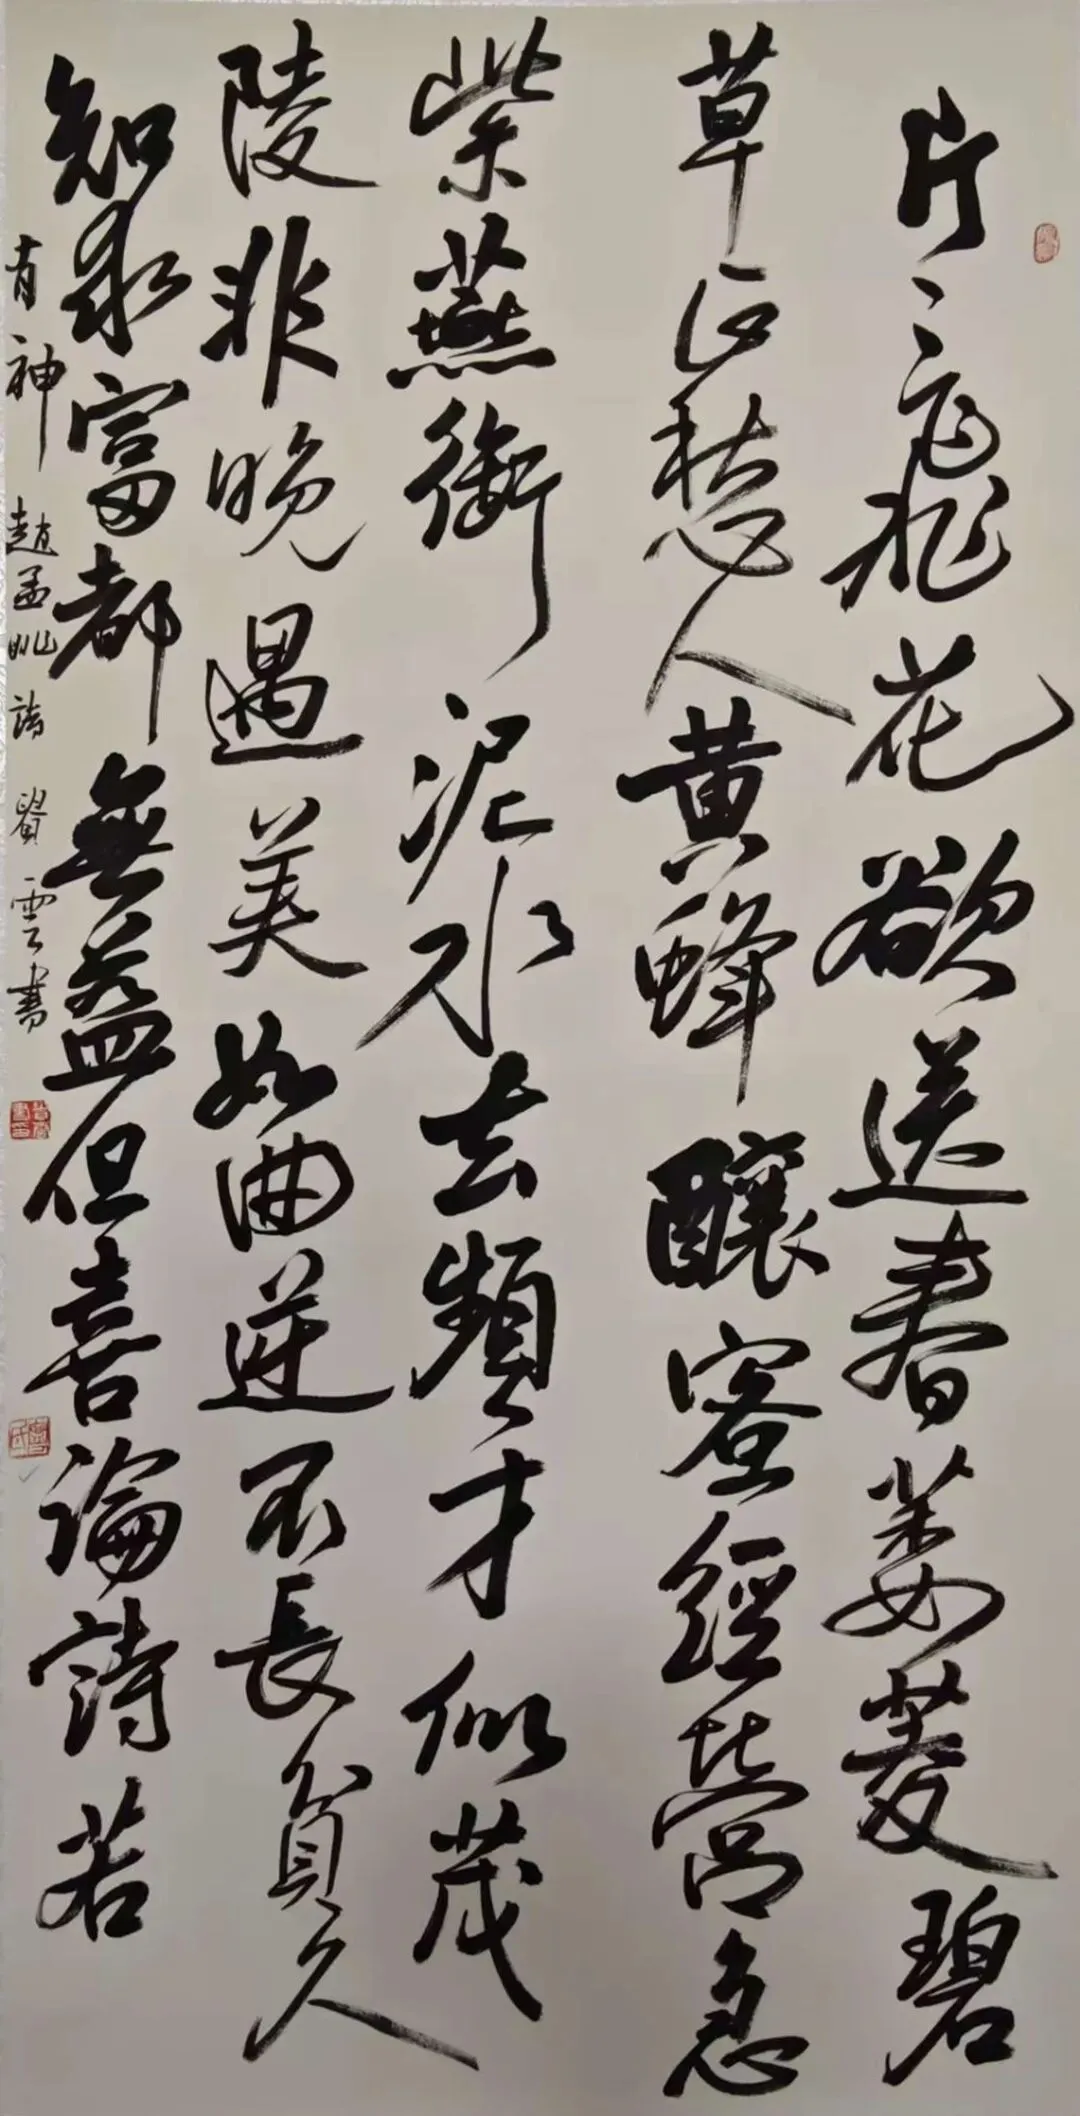 片〻飛花欲送春萋萋碧
草正愁人黄蜂釀蜜經營急
紫燕銜泥水去頻才似茂
陵非晚遇美如曲逆不長貧久
知求富都無益但喜論詩若
有神 趙孟頫詩 雲書